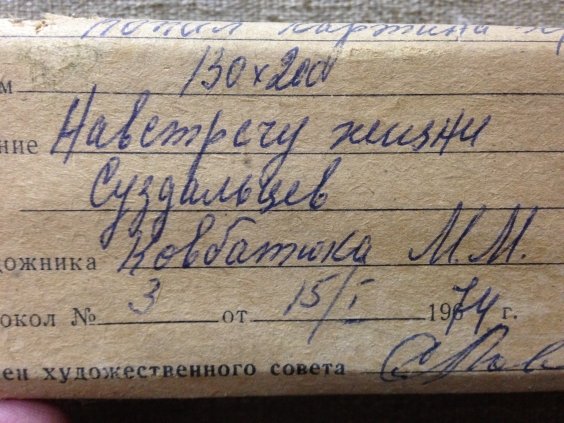 картина
м 130х200
ние Навстречу жизни
Суздальцев
ожника Ковбатюка М.М.
окол № 3 от 15/I 1974 г.
ен художественного совета